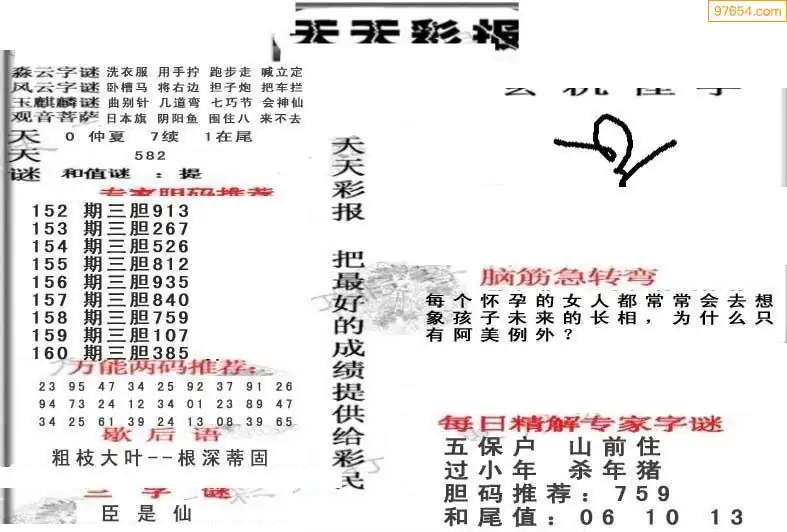 97654.com
天天彩报
森云字谜 洗衣服 用手拧 跑步走 喊立定
风云字谜 卧槽马 将右边 担子炮 把车拦
玉麒麟谜 曲别针 几道弯 七巧节 会神仙
观音菩萨 日本旗 阴阳鱼 围住八 来不去
天 0 仲夏 7续 1在尾
天 582
谜 和值谜 : 提
专家胆码推荐
152 期三胆913
153 期三胆267
154 期三胆526
155 期三胆812
156 期三胆935
157 期三胆840
158 期三胆759
159 期三胆107
160 期三胆385
万能两码推荐:
23 95 47 34 25 92 37 91 26
94 73 24 12 34 01 23 89 47
34 25 61 39 24 13 08 39 65
歇后语
粗枝大叶--根深蒂固
三字谜
臣是仙
天天彩报 把最好的成绩提供给彩民
脑筋急转弯
每个怀孕的女人都常常会去想
象孩子未来的长相，为什么只
有阿美例外？
每日精解专家字谜
五保户 山前住
过小年 杀年猪
胆码推荐: 759
和尾值: 06 10 13